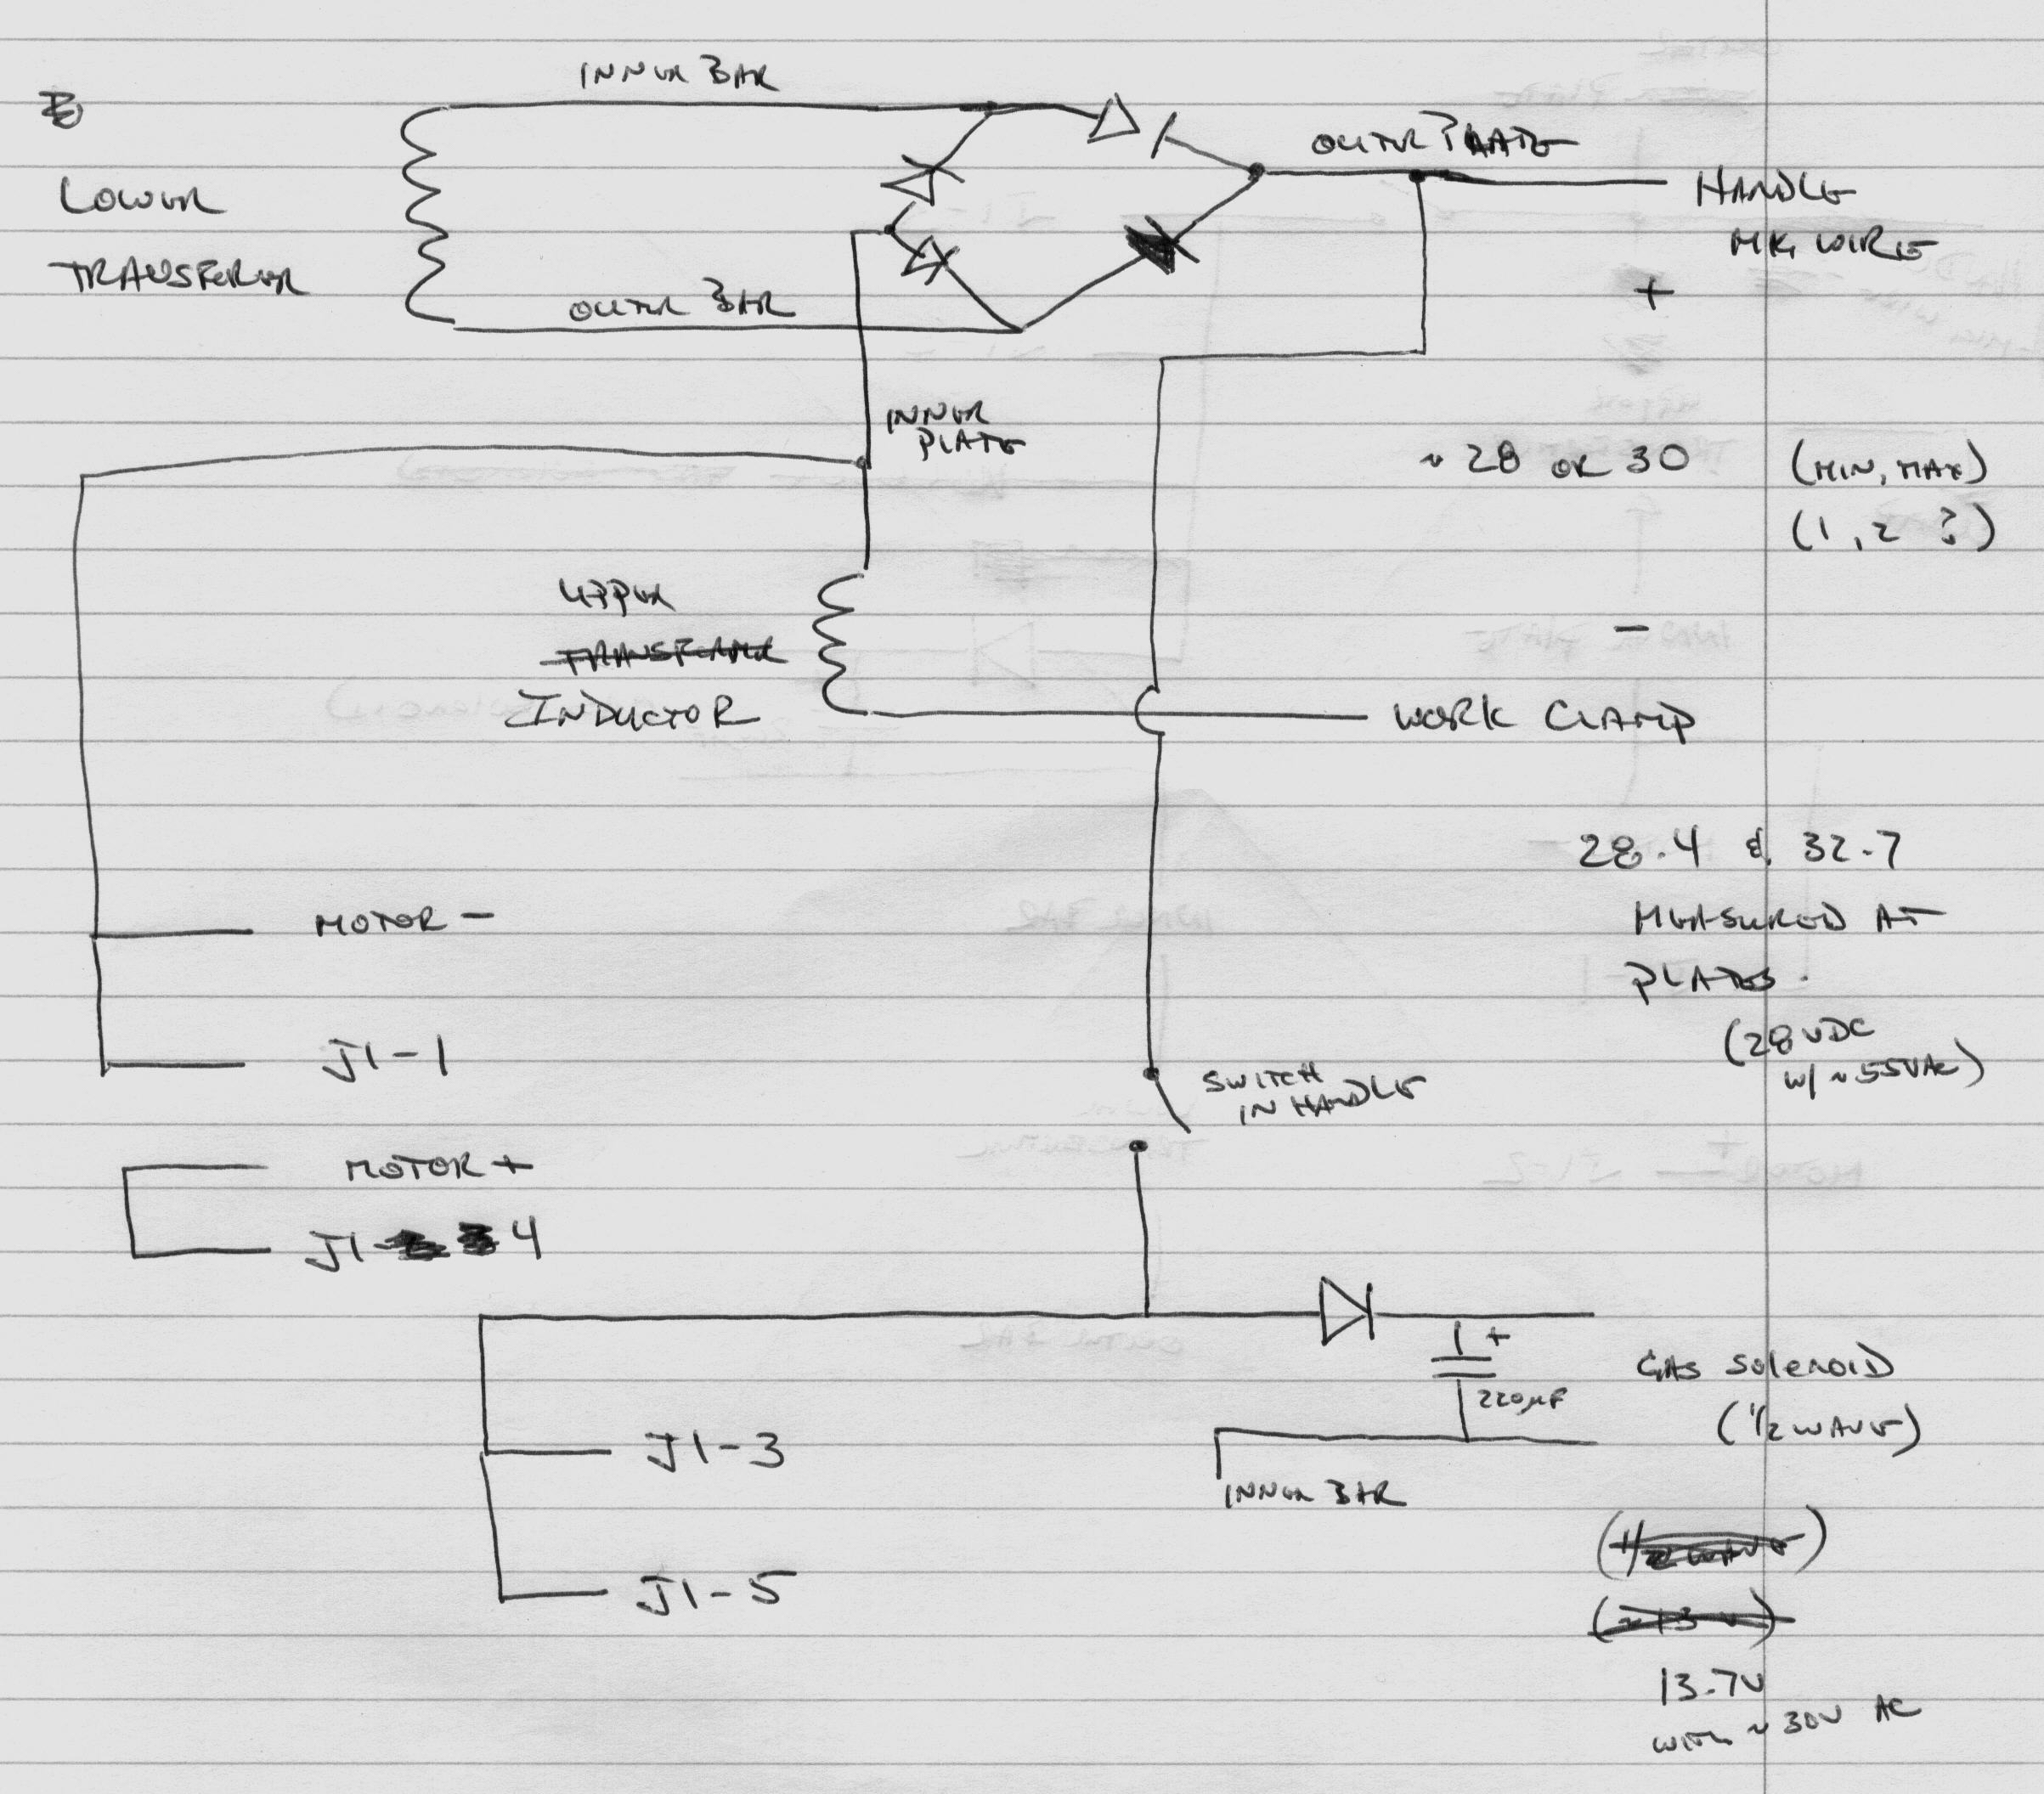 INNER BAR
OUTER PLATE
LOWER
TRANSFORMER
HANDLE
MIG WIRE
+
OUTER BAR
INNER
PLATE
~ 28 OR 30 (MIN, MAX)
(1, 2 ?)
UPPER
TRANSFORMER
INDUCTOR
-
WORK CLAMP
28.4 & 32.7
MEASURED AT
PLATES.
(28 VDC
W/ ~55VAC)
MOTOR -
J1-1
SWITCH
IN HANDLE
MOTOR +
J1- 4
+
220µF
GAS SOLENOID
(1/2 WAVE)
J1-3
INNER BAR
(1/2 WAVE)
(~13 V)
J1-5
13.7V
WITH ~ 30V AC